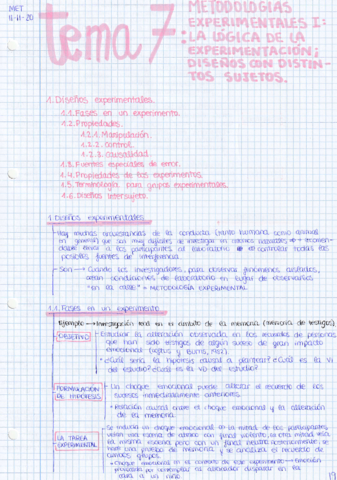 MET
11-11-20
tema 7:
METODOLOGIAS
EXPERIMENTALES I:
LA LÓGICA DE LA
EXPERIMENTACIÓN;
DISEÑOS CON DISTIN-
TOS SUJETOS.
1. Diseños experimentales.
1.1. Fases en un experimento.
1.2. Propiedades.
1.2.1. Manipulación.
1.2.2. Control.
1.2.3. Causalidad.
1.3. Fuentes especiales de error.
1.4. Propiedades de los experimentos.
1.5. Terminología para grupos experimentales.
1.6. Diseños intersujeto.
1. Diseños experimentales
Hay muchas circunstancias de la conducta (tanto humana como animal
en general) que son muy difíciles de investigar en entornos naturales →
a los participantes al laboratorio controlar todas las
posibles fuentes de interferencia.
Son → Cuando los investigadores, para observar fenómenos aislados,
crean condiciones de laboratorio en lugar de observarlos
"en la calle" = METODOLOGÍA EXPERIMENTAL.
1.1. Fases en un experimento
Ejemplo → Investigación real en el ámbito de la memoria (memoria de testigos)
Estudiar la alteración observada en los recuerdos de personas
que han sido testigos de algún suceso de gran impacto
emocional (Loftus y Burns, 1982).
• ¿Cuál sería la hipótesis causal a plantear? ¿Cuál es la VI
del estudio? ¿Cuál es la VD del estudio?
FORMULACIÓN
DE HIPÓTESIS
Un choque emocional puede afectar el recuerdo de los
sucesos inmediatamente anteriores.
• Relación causal entre el choque emocional y la alteración
de la memoria.
LA TAREA
EXPERIMENTAL
Se induce un choque emocional en la mitad de los participantes,
ven una escena de atraco con final violento, la otra mitad verá
la misma escena pero con un final neutro. Posteriormente, se
hace una prueba de memoria y se analiza el recuerdo de
ambos grupos.
• Choque emocional en el contexto de este experimento → Emoción
producida por contemplar al atracador disparar en la
cara a un niño.